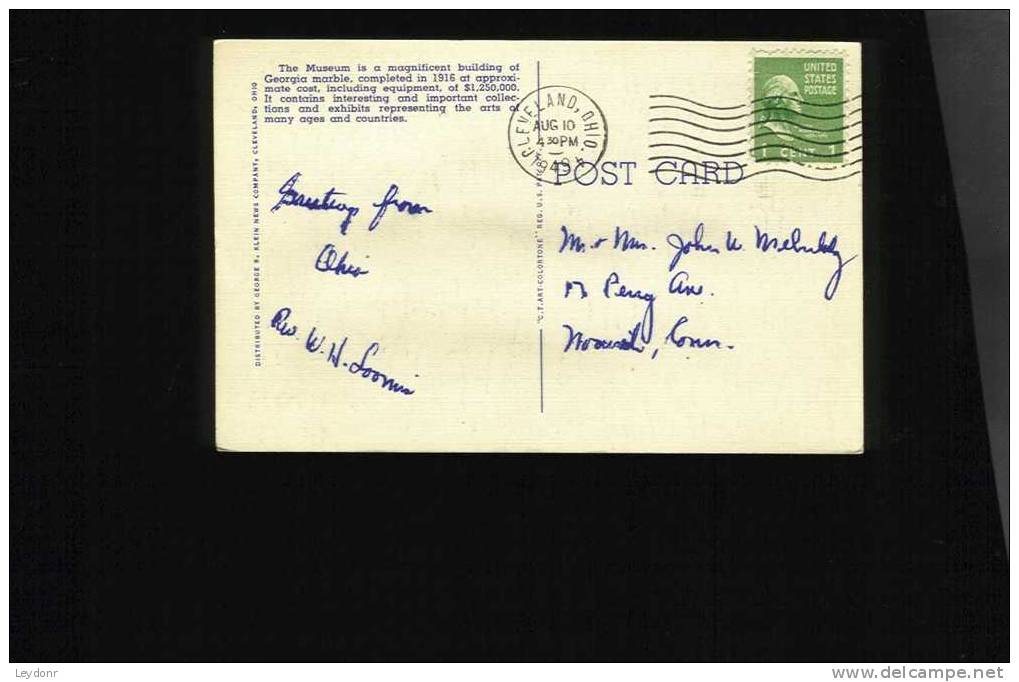 The Museum is a magnificent building of
Georgia marble, completed in 1916 at approxi-
mate cost, including equipment, of $1,250,000.
It contains interesting and important collec-
tions and exhibits representing the arts of
many ages and countries.
DISTRIBUTED BY GEORGE R. KLEIN NEWS COMPANY, CLEVELAND, OHIO
Greetings from
Ohio
Rev. W. H. Loomis
"C.T. ART-COLORTONE" REG. U.S. PAT.
CLEVELAND, OHIO.
AUG 10
4 30 PM
1949
UNITED
STATES
POSTAGE
1 CENT 1
POST CARD
Mr. + Mrs. John W.
Perry Ave.
Norwich, Conn.
Leydonr
http://www.delcampe.net